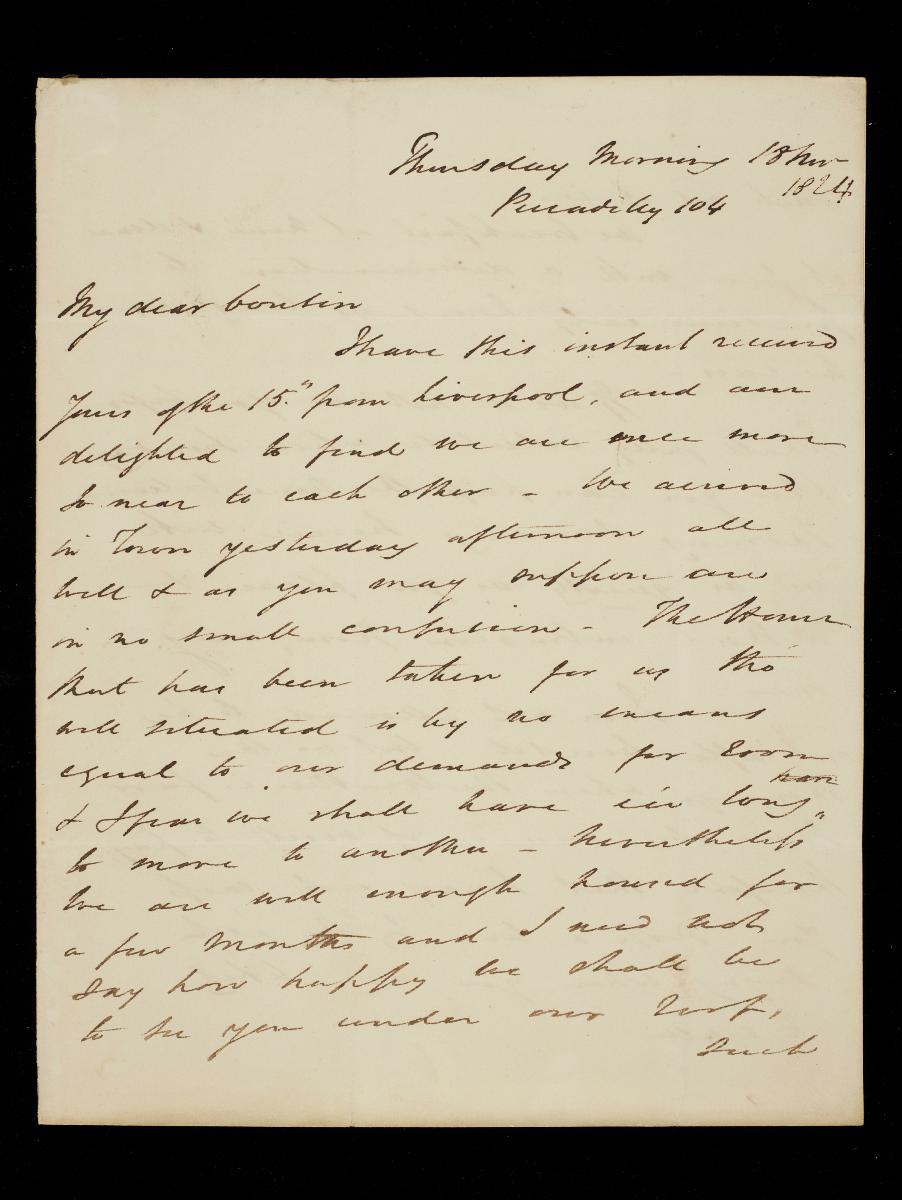 Thursday Morning 18 Nov
1824
Piccadilly 104
My dear Coutin
I have this instant received
yours of the 15th from Liverpool, and am
delighted to find we are once more
so near to each other - We arrived
in Town yesterday afternoon all
well & as you may suppose are
in no small confusion - The House
that has been taken for us tho'
well situated is by no means
equal to our demands for room
& I fear we shall have e'er long
to move to another - Nevertheless
we are well enough housed for
a few Months and I need not
say how happy we shall be
to see you under our Roof,
such